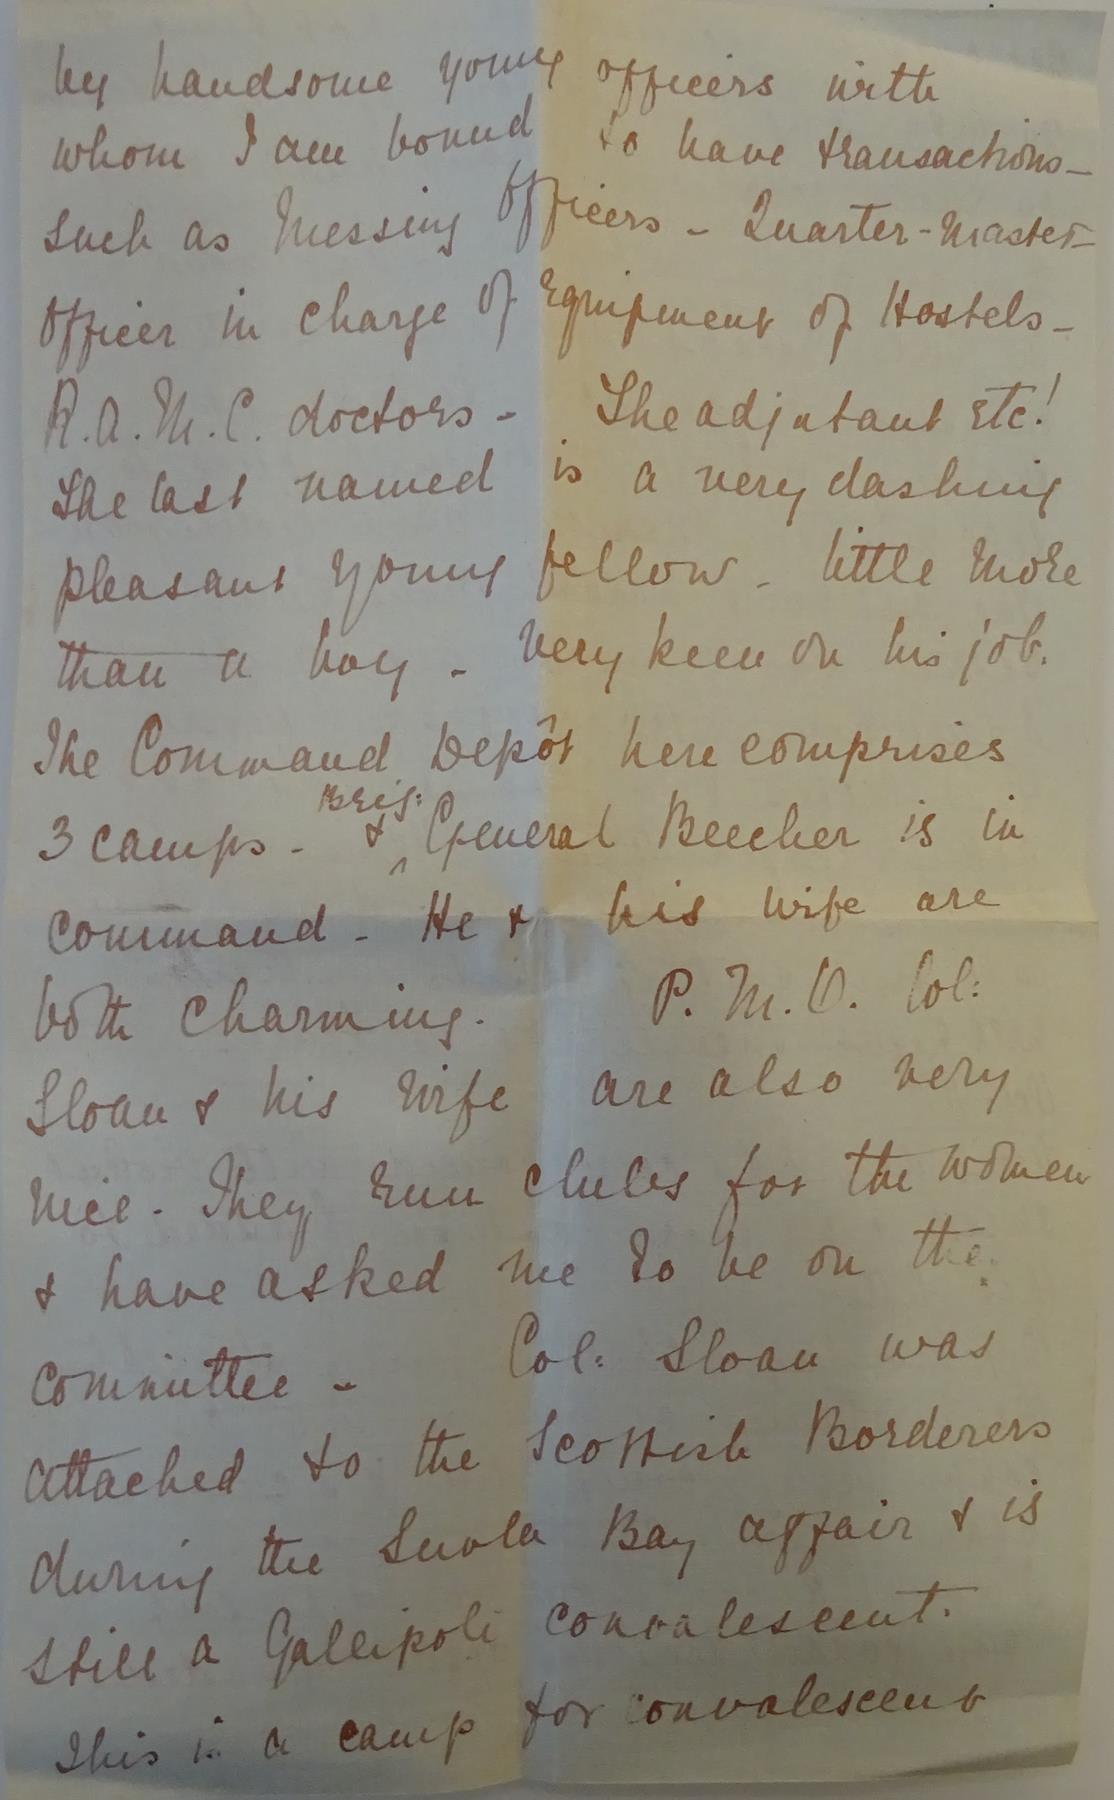 by handsome young officers with
whom I am bound to have transactions –
such as Messing Officers – Quarter-Master –
Officer in charge of Equipment of Hostels –
R.A.M.C. doctors – The adjutant Etc!
The last named is a very dashing
pleasant young fellow – little more
than a boy – very keen on his job.
The Command Depôt here comprises
3 camps – & ^Brig: General Beecher is in
command – He & his wife are
both charming. P.M.O. Col:
Sloan & his wife are also very
nice. They run clubs for the women
& have asked me to be on the
committee – Col: Sloan was
attached to the Scottish Borderers
during the Suvla Bay affair & is
still a Gallipoli convalescent.
This is a camp for convalescent